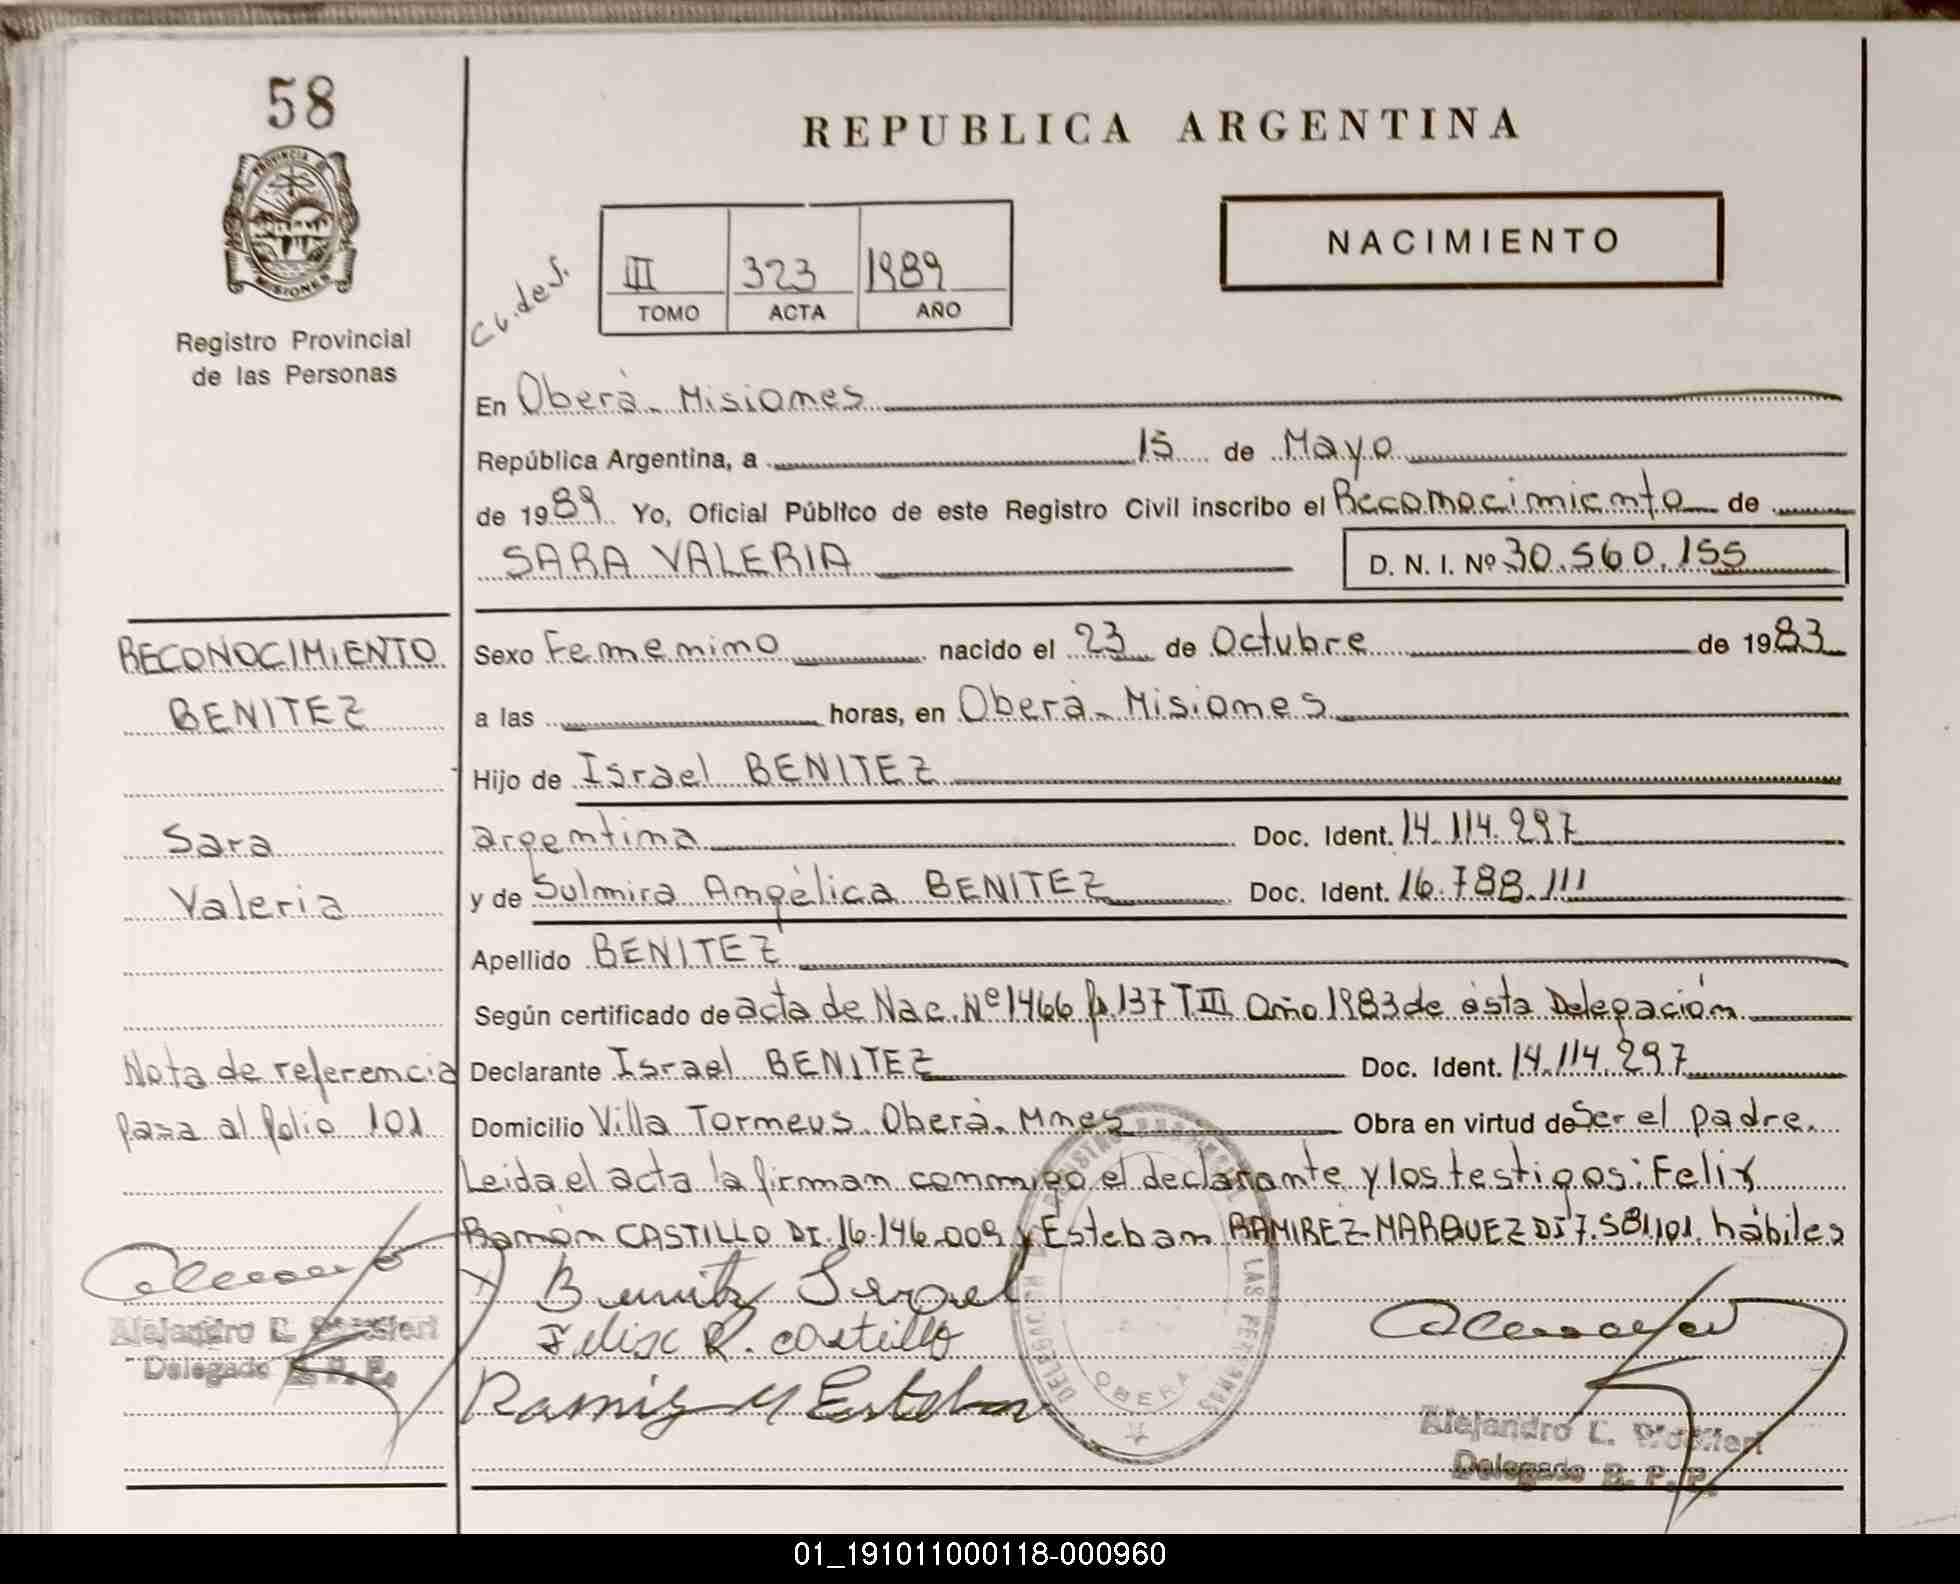 58
PROVINCIA DE
MISIONES
Registro Provincial
de las Personas
REPUBLICA ARGENTINA
NACIMIENTO
III 323 1989
TOMO ACTA AÑO
En Oberà. Misiones
República Argentina, a 15 de Mayo
de 1989. Yo, Oficial Público de este Registro Civil inscribo el Reconocimiento de
SARA VALERIA D. N. I. Nº 30.560.155
RECONOCIMIENTO
BENITEZ
Sara
Valeria
Nota de referencia
pasa al folio 101
Sexo Femenino nacido el 23 de Octubre de 1983
a las horas, en Oberà. Misiones
Hijo de Israel BENITEZ
argentina Doc. Ident. 14.114.297
y de Sulmira Angèlica BENITEZ Doc. Ident. 16.788.111
Apellido BENITEZ
Según certificado de acta de Nac. Nº 1466 fº 137 T III Año 1983 de ésta Delegación
Declarante Israel BENITEZ Doc. Ident. 14.114.297
Domicilio Villa Tormeus. Oberà. Mnes Obra en virtud de Ser el padre.
Leida el acta la firman conmigo el declarante y los testigos: Felix
Ramón CASTILLO DI. 16.146.009 y Esteban RAMIREZ MARQUEZ DI 7.581.101. hábiles
Benitez Israel
Felix R. Castillo
Ramirez M Esteban
OBERA
Alejandro L.
Delegado R. P. P.
Alejandro L.
Delegado R. P. P.
01_191011000118-000960